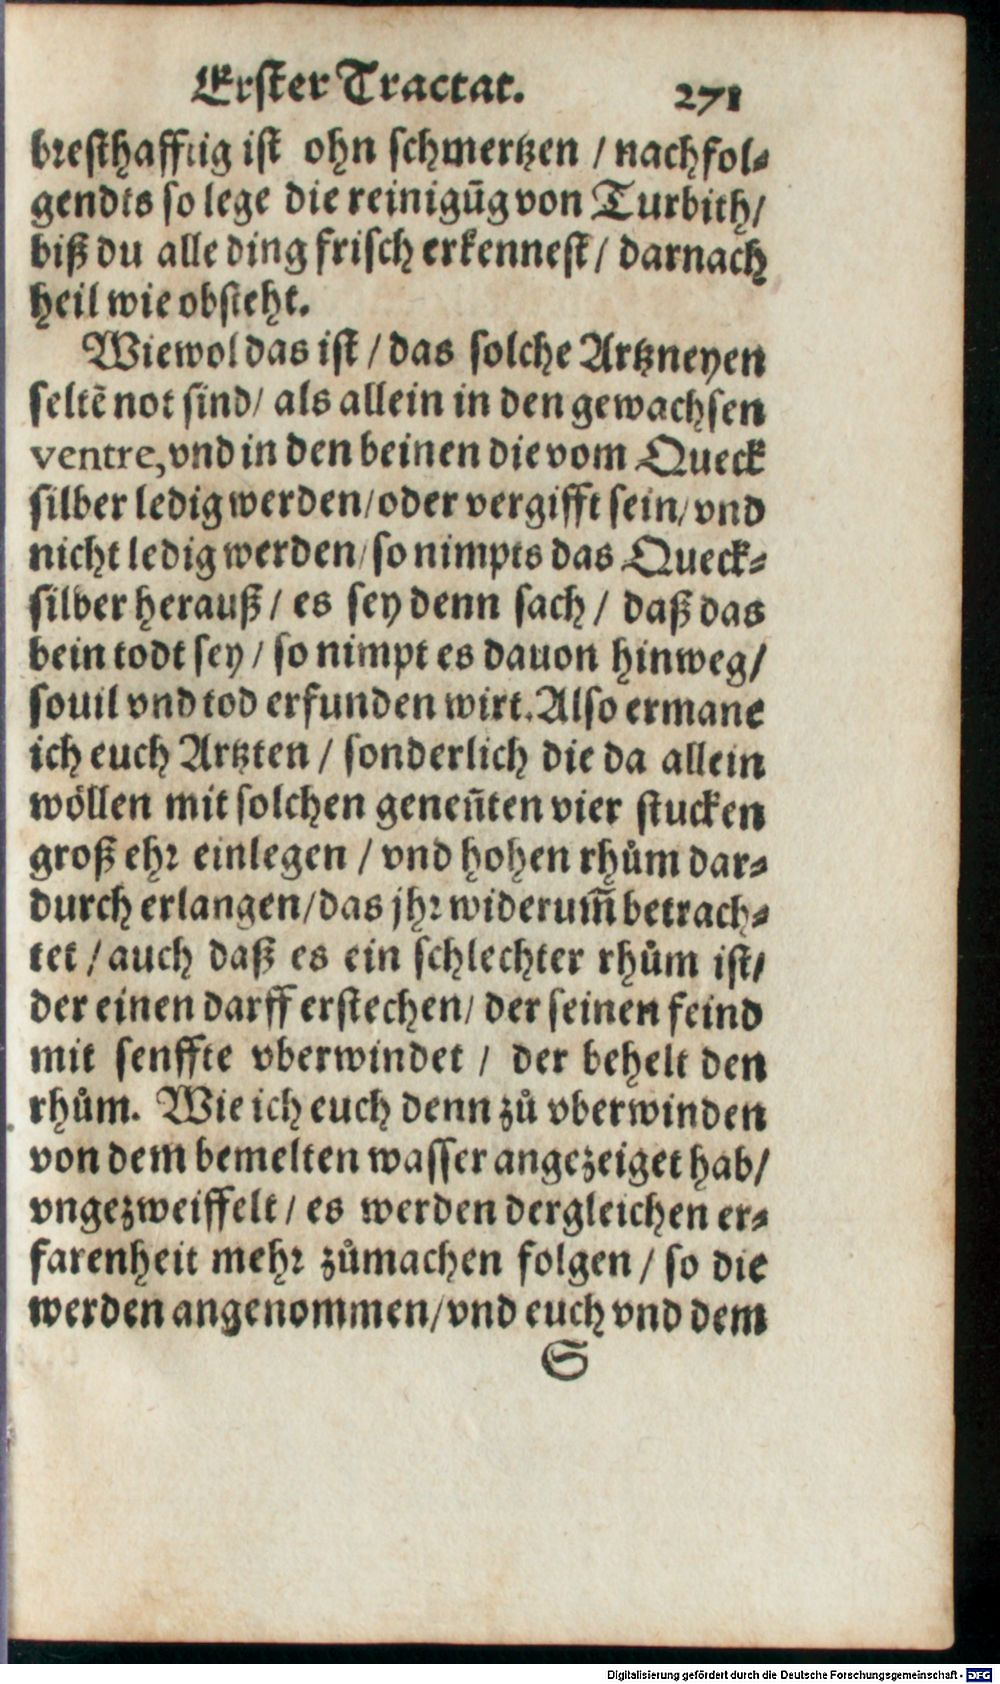 Erster Tractat. 271
bresthafftig ist ohn schmertzen / nachfol-
gendts so lege die reinigūg von Turbith/
biß du alle ding frisch erkennest / darnach
heil wie obsteht.
Wiewol das ist / das solche Artzneyen
seltē not sind/ als allein in den gewachsen
ventre, vnd in den beinen die vom Queck
silber ledig werden/oder vergifft sein/ vnd
nicht ledig werden/ so nimpts das Queck-
silber herauß / es sey denn sach / daß das
bein todt sey / so nimpt es dauon hinweg/
souil vnd tod erfunden wirt. Also ermane
ich euch Artzten / sonderlich die da allein
wöllen mit solchen geneñten vier stucken
groß ehr einlegen / vnd hohen rhům dar-
durch erlangen/das jhr widerum̄ betrach-
tet / auch daß es ein schlechter rhům ist/
der einen darff erstechen/ der seinen feind
mit senffte vberwindet / der behelt den
rhům. Wie ich euch denn zů vberwinden
von dem bemelten wasser angezeiget hab/
vngezweiffelt / es werden dergleichen er-
farenheit mehr zůmachen folgen / so die
werden angenommen/vnd euch vnd dem
S
Digitalisierung gefördert durch die Deutsche Forschungsgemeinschaft - DFG